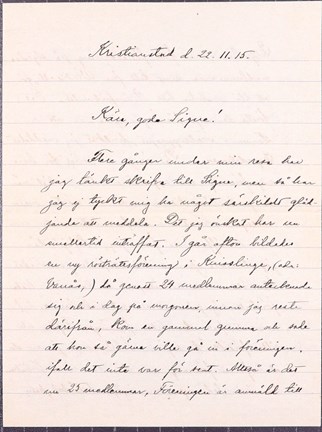 Kristianstad d. 22.11.15.
Kära, goda Signe!
Flere gånger under min resa har
jag tänkt skrifva till Signe, men så har
jag ej tyckt mig ha något särskildt gläd-
jande att meddela. Det jag önskat har nu
emellertid inträffat. I går afton bildades
en ny rösträttsförening i Knisslinge, (
) då genast 24 medlemmar antecknade
sig och i dag på morgonen, innan jag reste
därifrån, kom en gammal gumma och sade
att hon så gärna ville gå in i föreningen,
ifall det inte var för sent. Alltså är det
nu 25 medlemmar, Föreningen är anmäld till